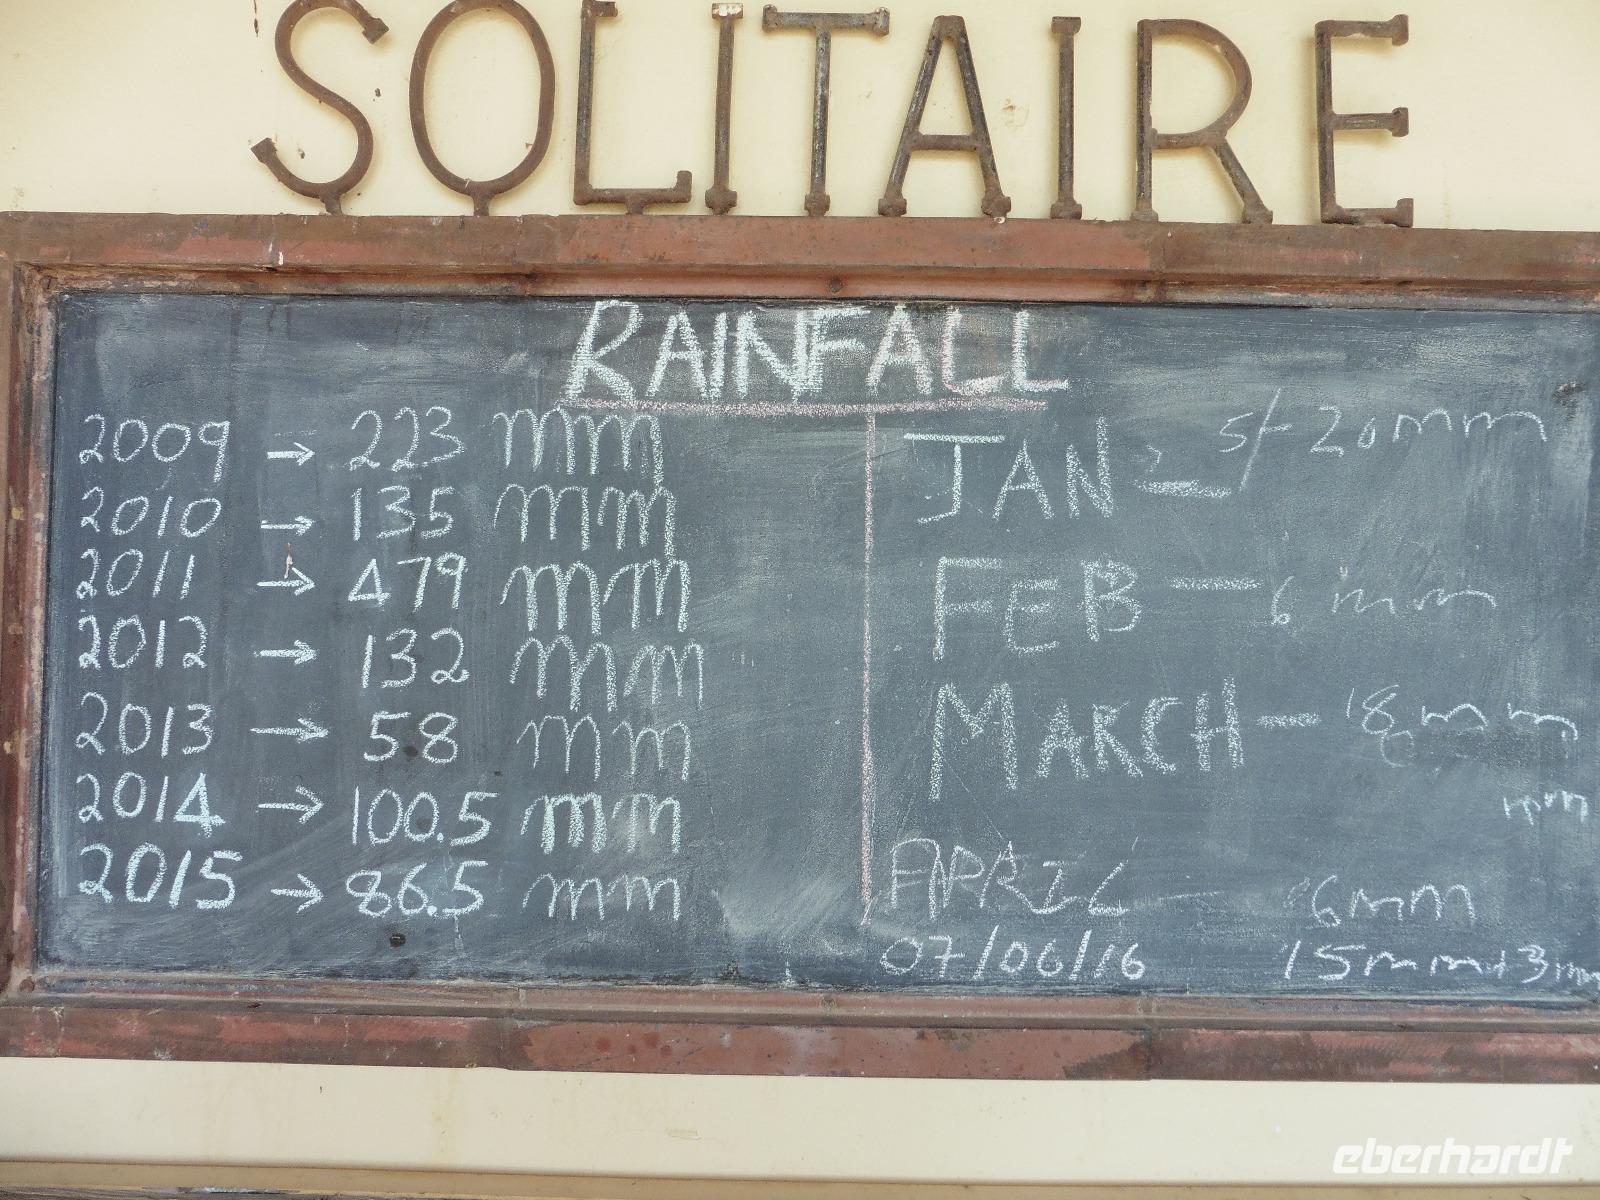 SOLITAIRE
RAINFALL
2009 → 223 mm
2010 → 135 mm
2011 → 479 mm
2012 → 132 mm
2013 → 58 mm
2014 → 100.5 mm
2015 → 86.5 mm
JAN - 20mm
FEB - 6 mm
MARCH - 18mm
mm
APRIL - 6mm
07/06/16 15mm+3mm
eberhardt